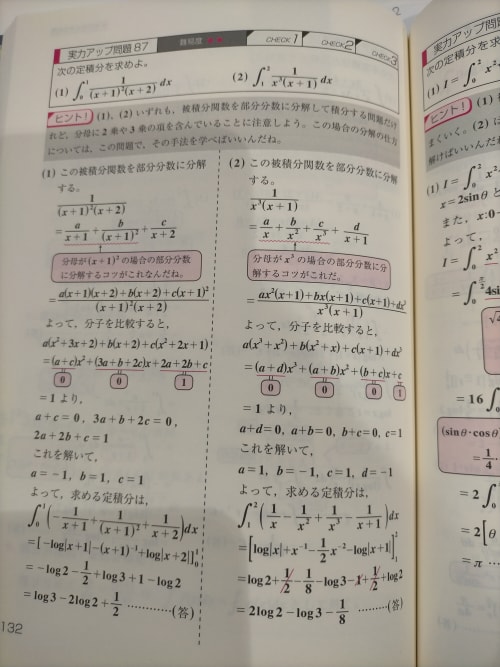 2
実力アップ問題 87 難易度 ★★ CHECK 1 CHECK 2 CHECK 3
次の定積分を求めよ。
(1) ∫₀¹ 1/((x+1)²(x+2)) dx (2) ∫₁² 1/(x³(x+1)) dx
ヒント! (1), (2) いずれも, 被積分関数を部分分数に分解して積分する問題だけ
れど, 分母に 2 乗や 3 乗の項を含んでいることに注意しよう。この場合の分解の仕方
については, この問題で, その手法を学べばいいんだね。
(1) この被積分関数を部分分数に分解
する。
1/((x+1)²(x+2))
= a/(x+1) + b/(x+1)² + c/(x+2)
分母が (x+1)² の場合の部分分数
に分解するコツがこれなんだね。
= (a(x+1)(x+2)+b(x+2)+c(x+1)²)/((x+1)²(x+2))
よって, 分子を比較すると,
a(x²+3x+2)+b(x+2)+c(x²+2x+1)
=(a+c)x²+(3a+b+2c)x+2a+2b+c
0 0 1
= 1 より,
a+c=0, 3a+b+2c=0,
2a+2b+c=1
これを解いて,
a=−1, b=1, c=1
よって, 求める定積分は,
∫₀¹(−1/(x+1) + 1/(x+1)² + 1/(x+2))dx
=[−log|x+1|−(x+1)⁻¹+log|x+2|]₀¹
=−log2−1/2+log3+1−log2
=log3−2log2+1/2 …………(答)
(2) この被積分関数を部分分数に分解
する。
1/(x³(x+1))
= a/x + b/x² + c/x³ + d/(x+1)
分母が x³ の場合の部分分数に分
解するコツがこれだ。
= (ax²(x+1)+bx(x+1)+c(x+1)+dx³)/(x³(x+1))
よって, 分子を比較すると,
a(x³+x²)+b(x²+x)+c(x+1)+dx³
=(a+d)x³+(a+b)x²+(b+c)x+c
0 0 0 1
= 1 より,
a+d=0, a+b=0, b+c=0, c=1
これを解いて,
a=1, b=−1, c=1, d=−1
よって, 求める定積分は,
∫₁²(1/x − 1/x² + 1/x³ − 1/(x+1))dx
=[log|x|+x⁻¹−1/2x⁻²−log|x+1|]₁²
=log2+1/2−1/8−log3−1+1/2+log2
=2log2−log3−1/8 …………(答)
132
実力アップ問題
次の定積分を求めよ。
(1) I=∫₀² x²
ヒント!
まくいく。(2) は
解けばいいんだ
(1) I=∫₀² x²
x=2sinθ と
また, x:0
よって,
I=∫₀² x²
4si
=16∫₀
(sinθ·cosθ
=1/4
=2∫₀
=2[θ
=π …